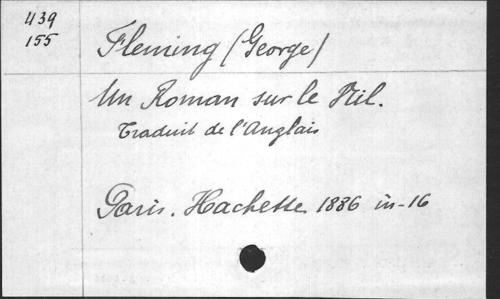 439
155
Fleming (George)
Un Roman sur le Nil.
Traduit de l'Anglais
Paris. Hachette 1886 in-16